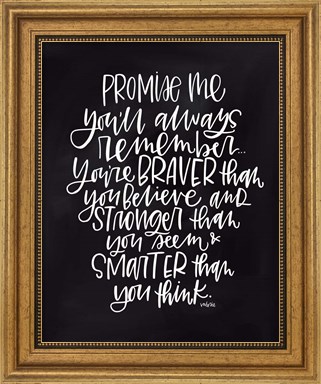 PROMISE ME
you'll always
remember...
You're BRAVER than
you believe and
STRONGER than
you seem &
SMARTER than
you think.